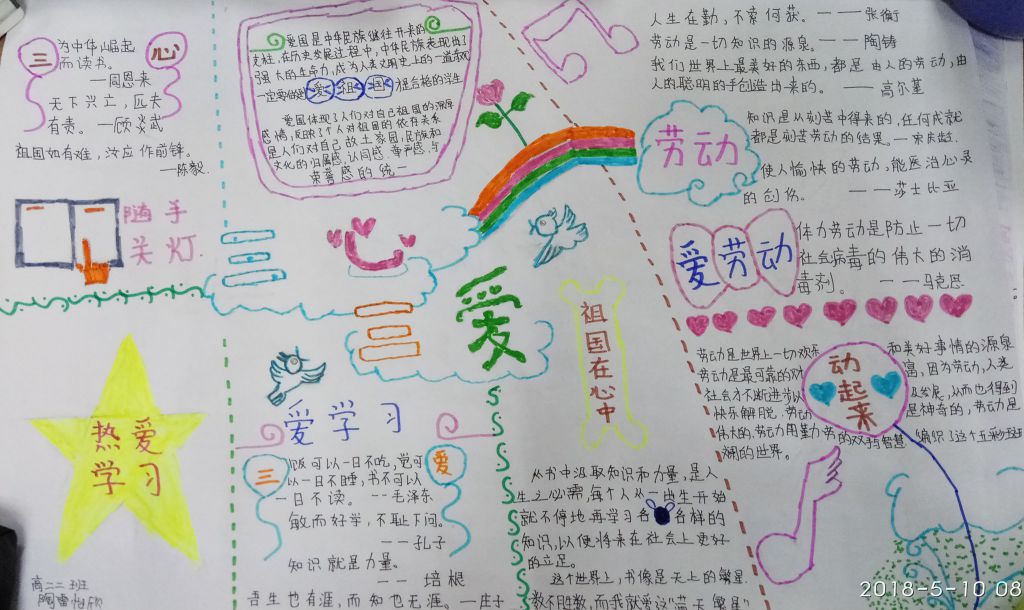 三
心
为中华崛起
而读书。
——周恩来
天下兴亡，匹夫
有责。—顾炎武
祖国如有难，汝应作前锋.
——陈毅.
随手
关灯.
热爱
学习
高二二班
爱国是中华民族继往开来的
支柱,在历史发展过程中,中华民族表现出了
强大的生命力,成为人类文明史上的一道
一定要做
爱祖国
合格的学生
爱国体现了人们对自己祖国的深厚
感情,反映了个人对祖国的依存关系
是人们对自己故土家园,民族和
文化的归属感.认同感.尊严感.与
荣誉感的统一
三心
三
爱
祖国在心中
爱学习
三
爱
饭可以一日不吃,觉可
以一日不睡,书不可以
一日不读。--毛泽东
敏而好学，不耻下问。
——孔子
知识就是力量。
—— 培根
吾生也有涯,而知也无涯。—庄子
从书中汲取知识和力量,是人
生之必需,每个人从一出生开始
就不停地再学习各各样的
知识,以使将来在社会上更好
的立足。
这个世界上,书像是天上的繁星
数不胜数,而我就爱这"蓝天繁星"
人生在勤，不索何获。——张衡
劳动是一切知识的源泉。——陶铸
我们世界上最美好的东西,都是由人的劳动,由
人的聪明的手创造出来的。——高尔基
劳动
知识是从刻苦中得来的,任何成就
都是刻苦劳动的结果。—宋庆龄.
使人愉快的劳动,能医治心灵
的创伤。——莎士比亚
爱劳动
体力劳动是防止一切
社会病毒的伟大的消
毒剂。——马克思
劳动是世界上一切欢乐
和美好事情的源泉
劳动是最可靠的财
富,因为劳动,人类
社会才不断进步
发展,从而也得到
快乐解脱.劳动
是神奇的,劳动是
伟大的,劳动用勤劳的双手与智慧
编织了这个五彩斑
斓的世界。
动起来
2018-5-10 08